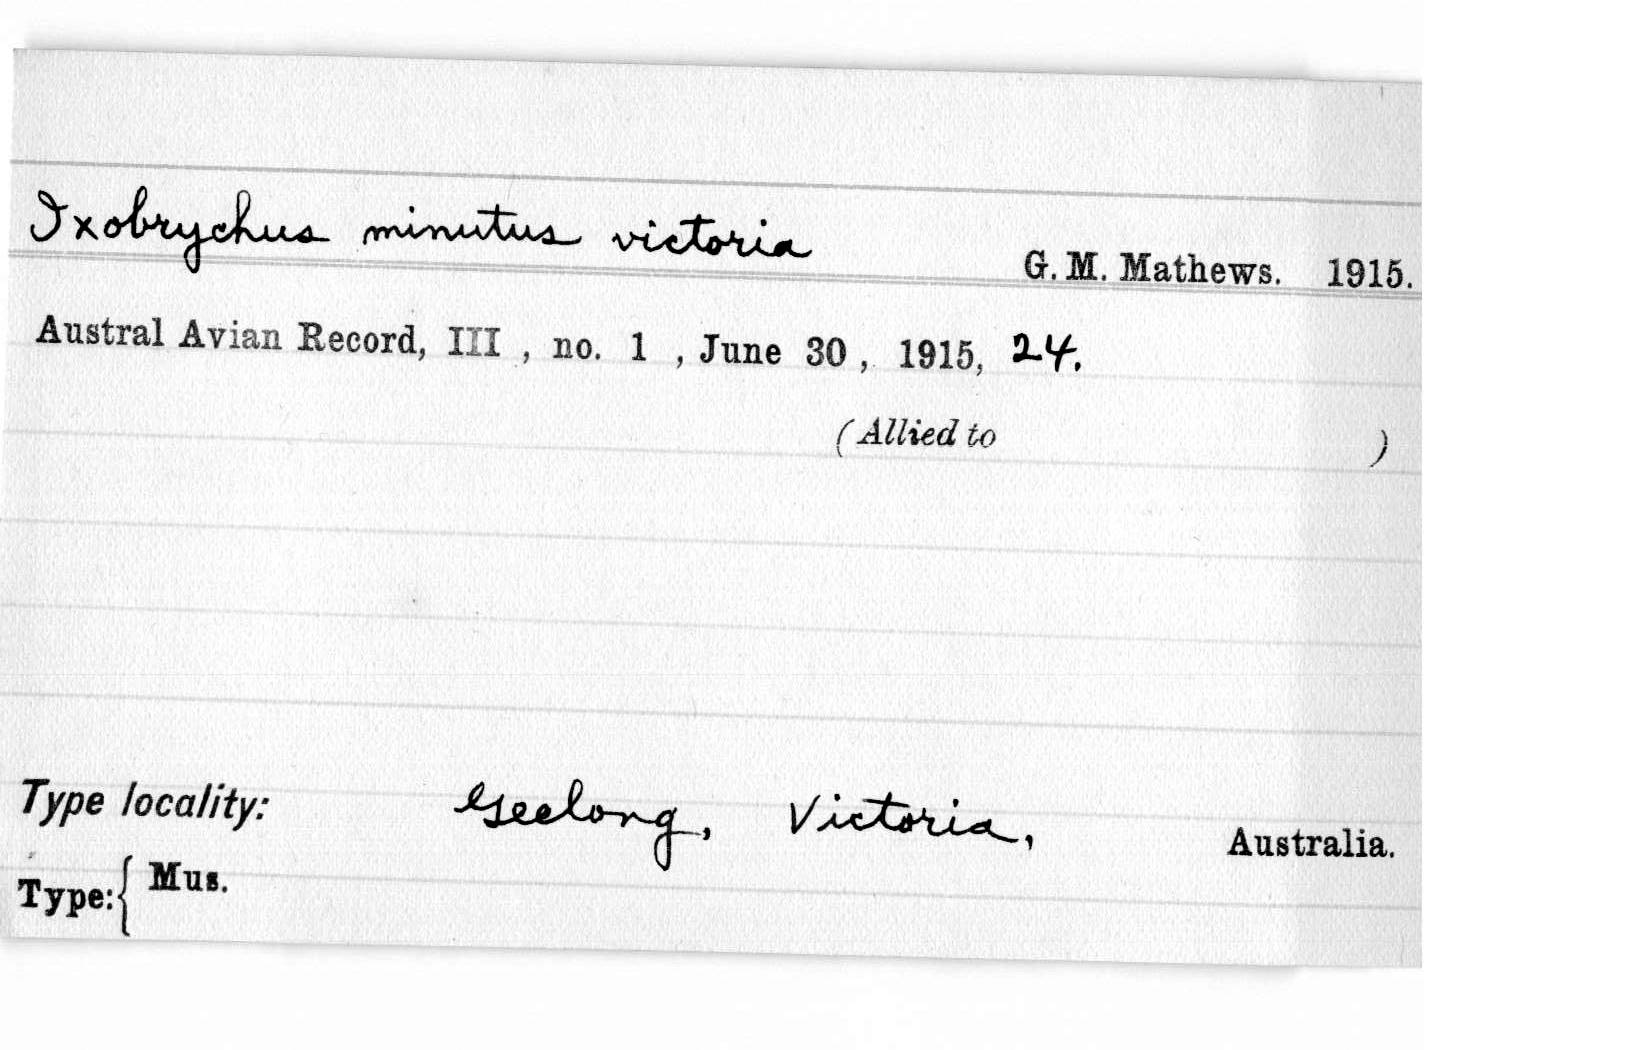 Ixobrychus minutus victoria G. M. Mathews. 1915.
Austral Avian Record, III , no. 1 , June 30 , 1915, 24.
(Allied to )
Type locality: Geelong, Victoria, Australia.
Type:{ Mus.